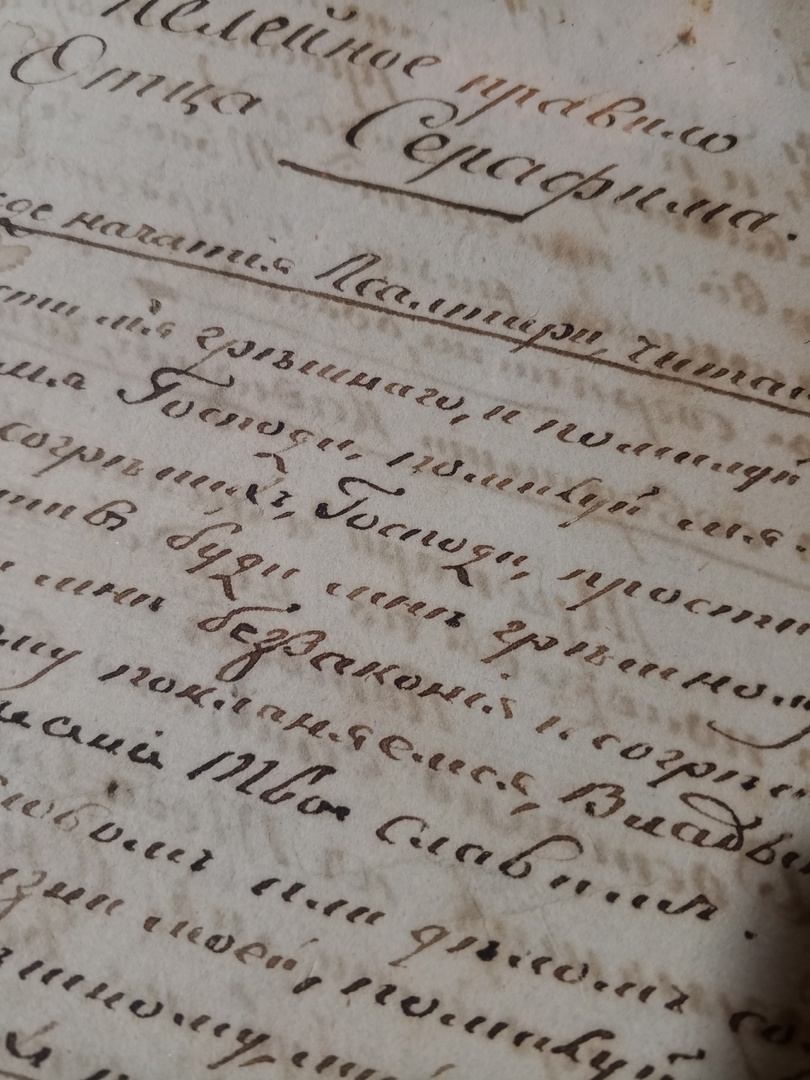 Келейное правило
Отца Серафима.
начатія Псалтири, читай
мя грѣшнаго, и помилуй
мя Господи, помилуй мя.
согрѣшихъ, Господи, прости
буди мнѣ грѣшному
мнѣ беззаконія и согрѣ
покланяемся, Влады
Твое славимъ.
словомъ или дѣломъ со
моей, помилуй